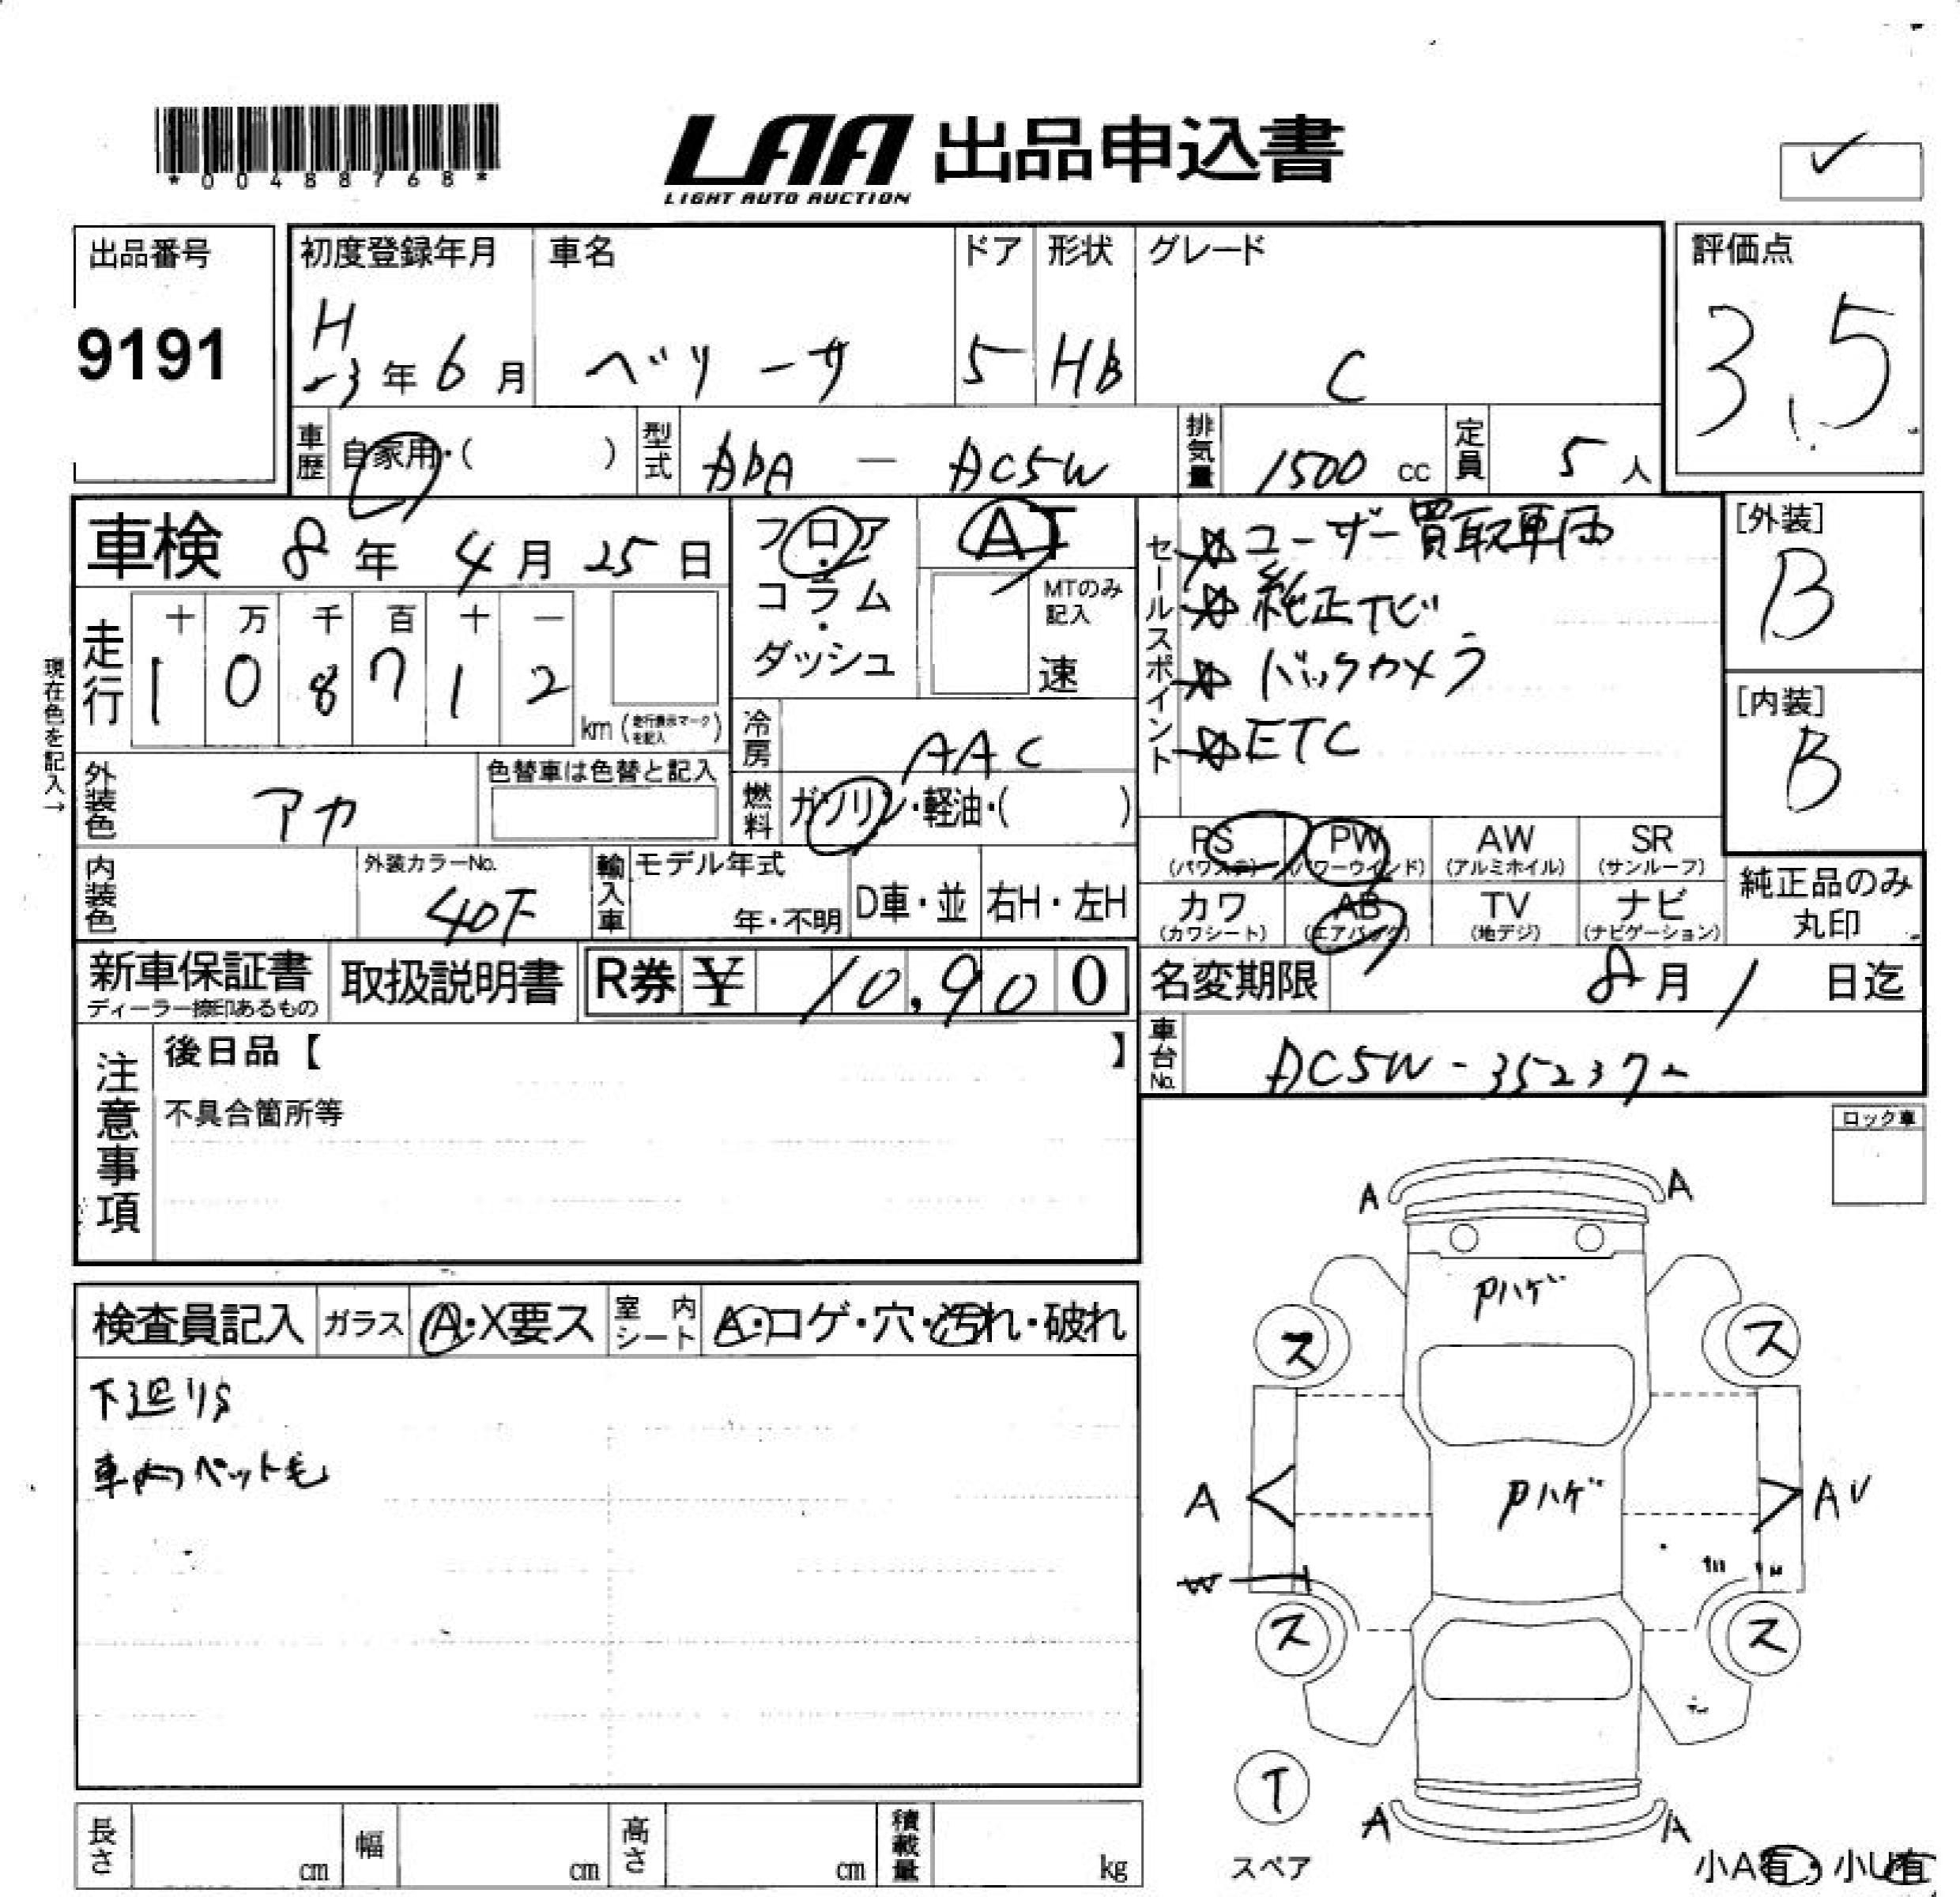 *00488768*
LAA 出品申込書
LIGHT AUTO AUCTION
出品番号
9191
初度登録年月
H
23年6月
車名
ベリーサ
ドア
5
形状
HB
グレード
C
評価点
3.5
車歴
自家用・( )
型式
ABA - DC5W
排気量
1500 cc
定員
5 人
車検 8年 4月 25日
フロア・コラム・ダッシュ
AT
MTのみ記入
速
セールスポイント
☆ユーザー買取車両
☆純正ナビ
☆バックカメラ
☆ETC
[外装]
B
[内装]
B
現在色を記入→
走行
十 万 千 百 十 一
1 0 8 7 1 2
km (走行表示マークを記入)
冷房
AAC
外装色
アカ
色替車は色替と記入
燃料
ガソリン・軽油・( )
PS (パワステ)
PW (パワーウインド)
AW (アルミホイル)
SR (サンルーフ)
カワ (カワシート)
AB (エアバック)
TV (地デジ)
ナビ (ナビゲーション)
純正品のみ丸印
内装色
外装カラーNo.
輸入車
モデル年式
年・不明
D車・並
右H・左H
新車保証書
ディーラー捺印あるもの
取扱説明書
R券 ¥ 10,900
名変期限 8月 1日迄
車台No.
DC5W-352372
注意事項
後日品【 】
不具合箇所等
ロック車
検査員記入
ガラス
A・X要ス
室内シート
A・コゲ・穴・汚れ・破れ
下廻りS
車内ペット毛
A
A
Pハゲ
ス
ス
Pハゲ
A
AU
W
ス
ス
T
スペア
A
A
小A有・小U有
長さ cm
幅 cm
高さ cm
積載量 kg